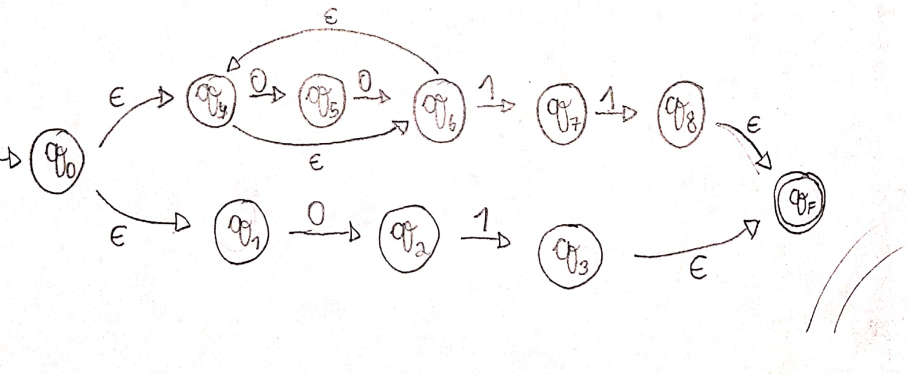 ε
ε q4 0 q5 0 q6 1 q7 1 q8 ε
q0 ε qF
ε q1 0 q2 1 q3 ε